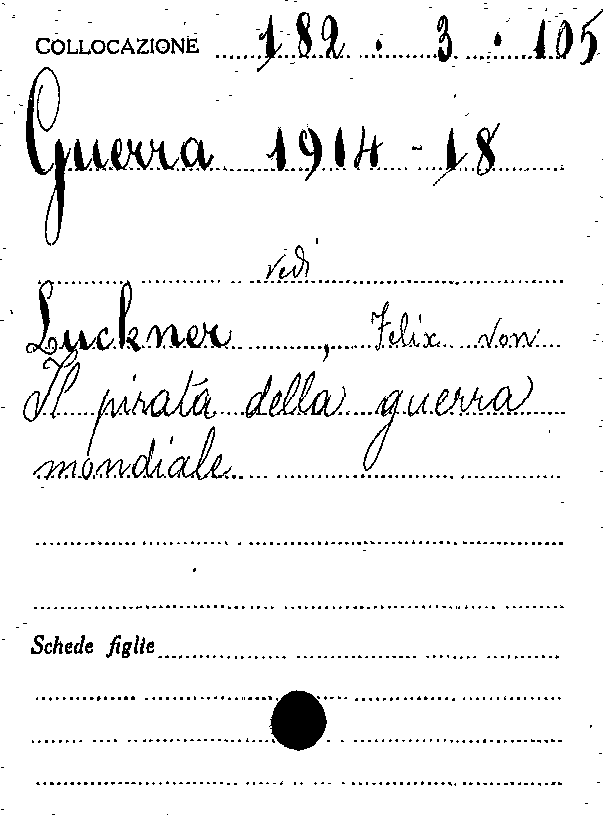 COLLOCAZIONE 182 . 3 . 105
Guerra 1914-18
vedi
Luckner, Felix von
Il pirata della guerra
mondiale
Schede figlie